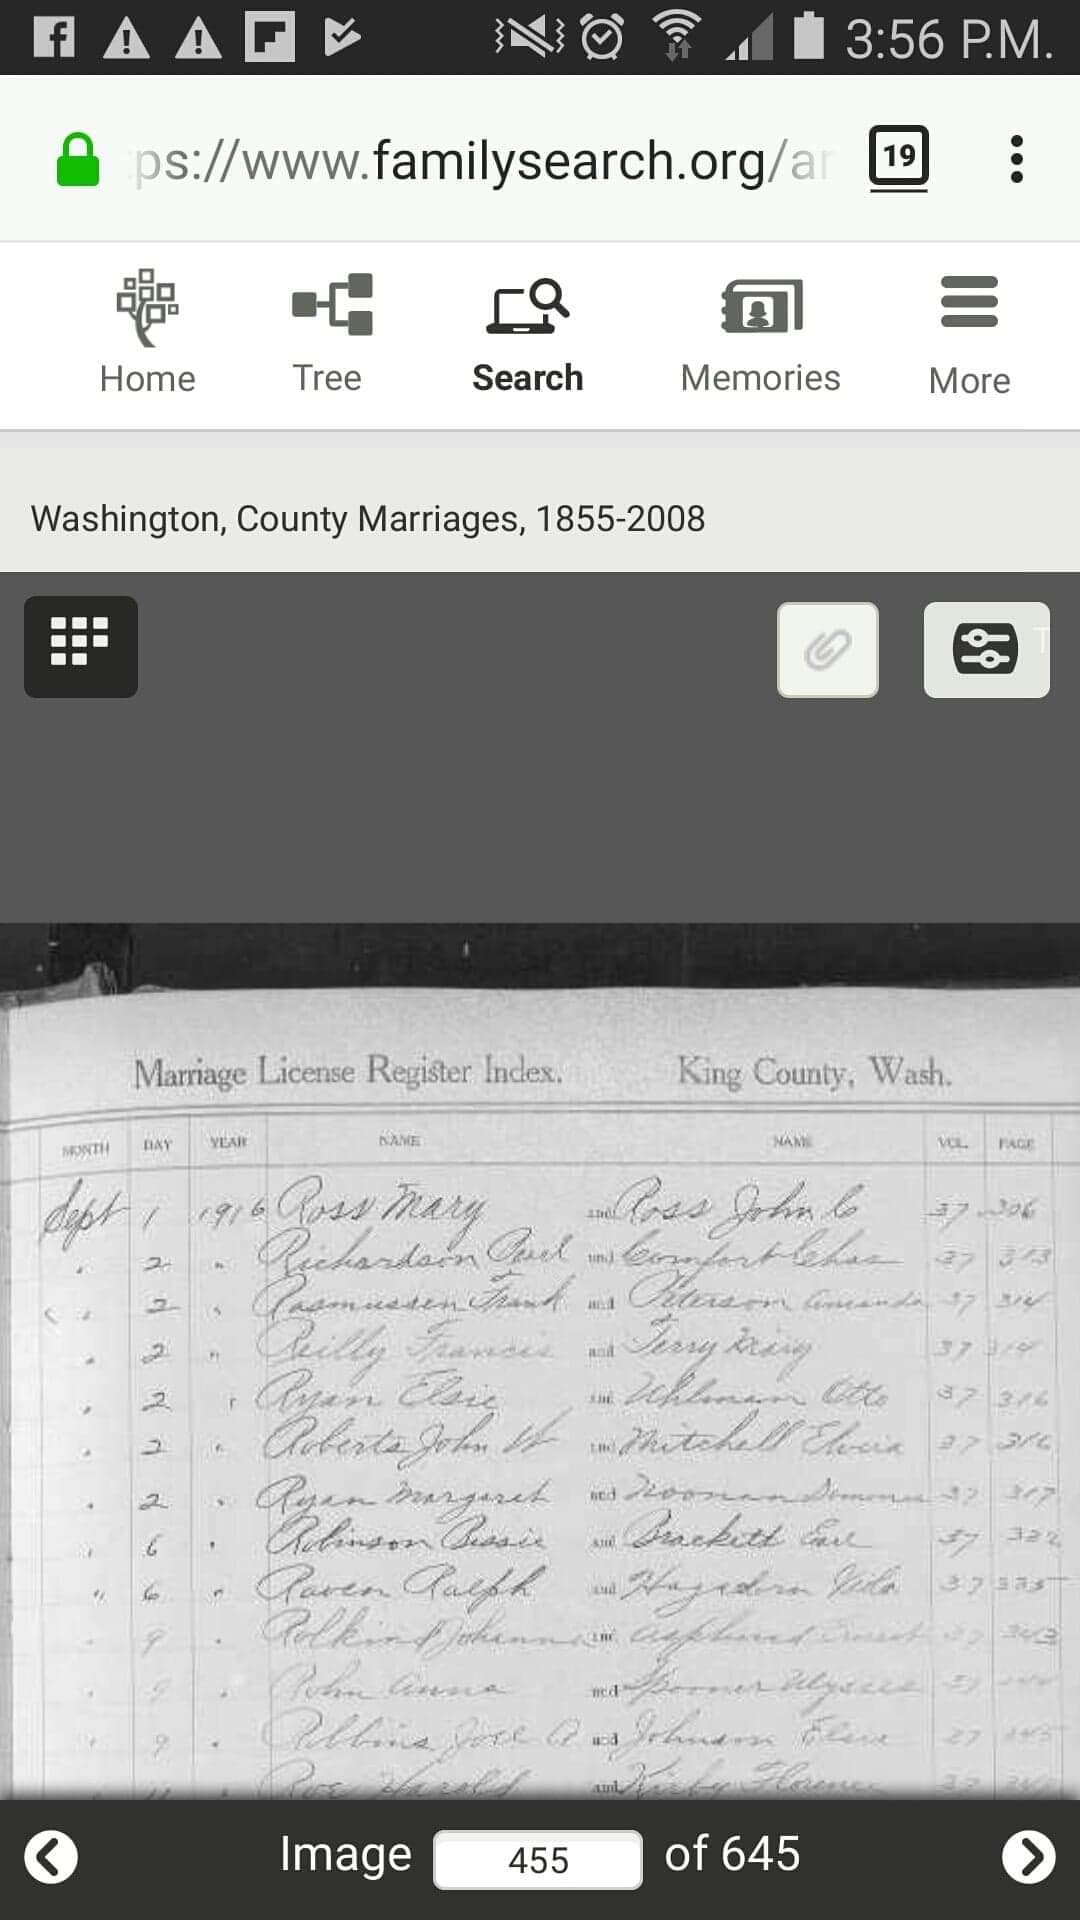 3:56 P.M.
ps://www.familysearch.org/ar
19
Home Tree Search Memories More
Washington, County Marriages, 1855-2008
Marriage License Register Index. King County, Wash.
MONTH DAY YEAR NAME NAME VOL. PAGE
Sept 1 1916 Ross Mary and Ross John C 37 306
" 2 " Richardson Pearl and Comfort Chas 37 313
" 2 " Rasmussen Frank and Peterson Amanda 37 314
" 2 " Reilly Francis and Terry 37 314
" 2 " Ryan Elsie and Uhlman Otto 37 316
" 2 " Roberts John W and Mitchell 37 316
" 2 " Ryan Margaret and Noonan 37 317
" 6 " Robinson Bessie and Brackett Earl 37 322
" 6 " Raven Ralph and Hagadorn 37 335
" 9 " and
" 9 " Rohn Anna and Spooner Ulysses
" 9 " Robbins Joel A and Johnson Elsie 37 345
Roe Harold and Kirby Florence 37
Image 455 of 645